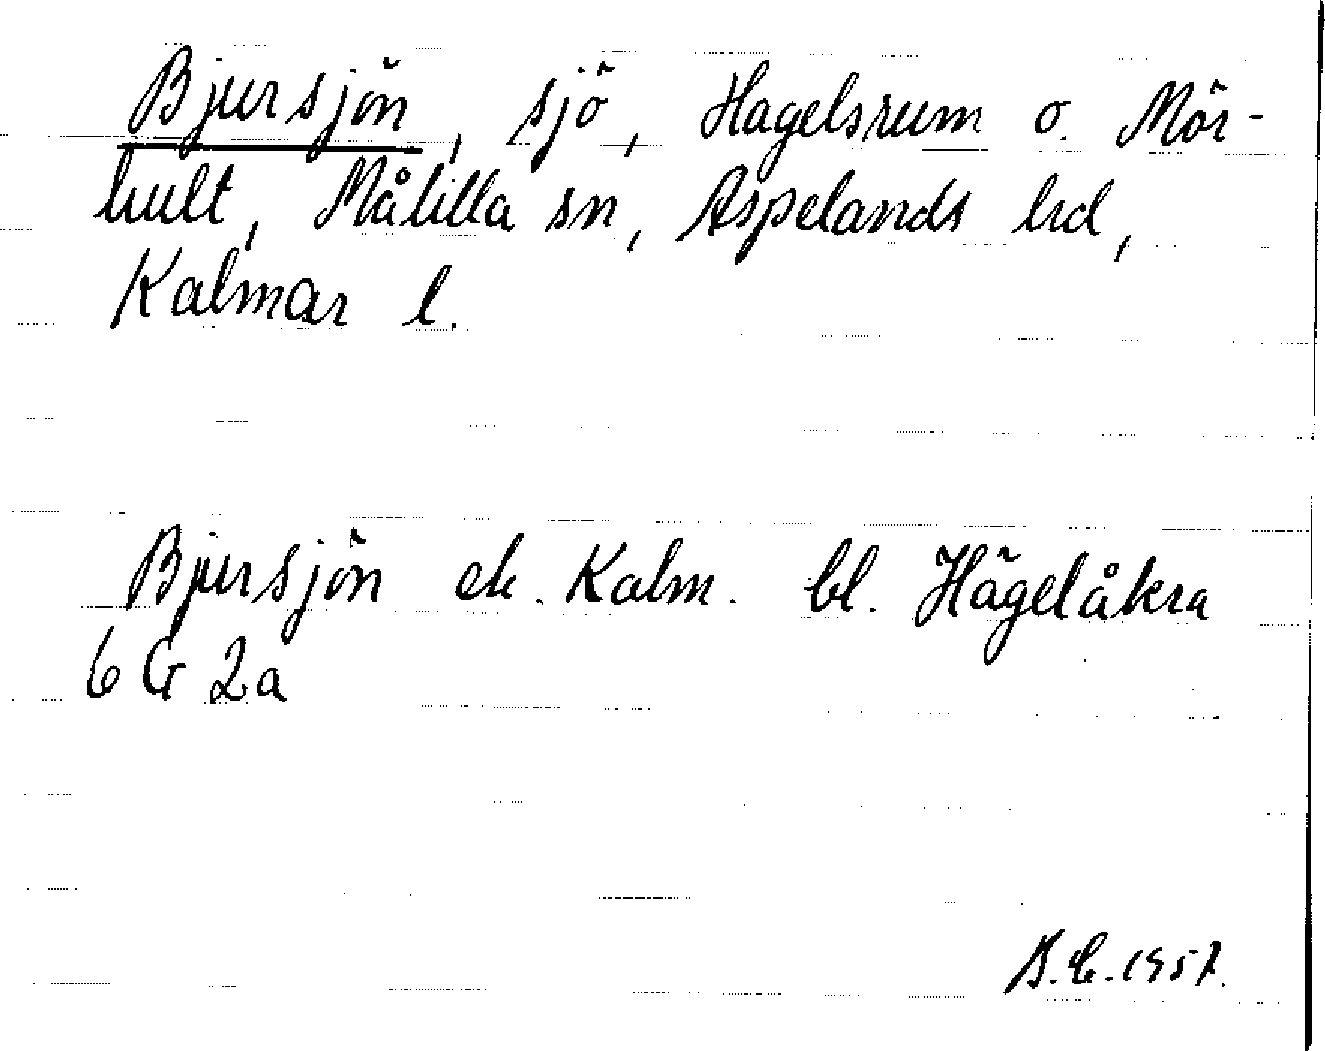 Bjursjön, sjö, Hagelsrum o. Mör-
hult, Målilla sn, Aspelands hd,
Kalmar l.
Bjursjön ek. Kalm. bl. Hägelåkra
6 G 2a
B.E. 1957.